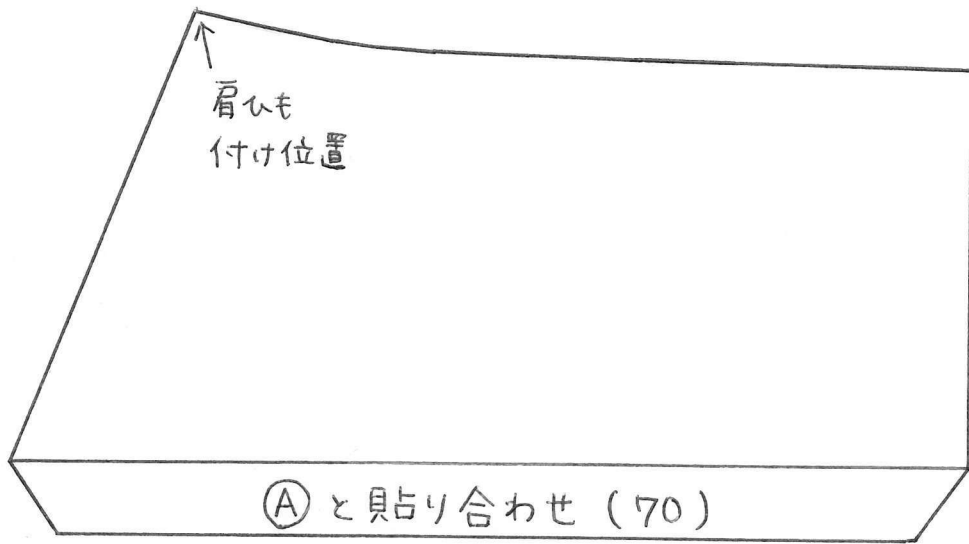 肩ひも
付け位置
Ⓐと貼り合わせ(70)